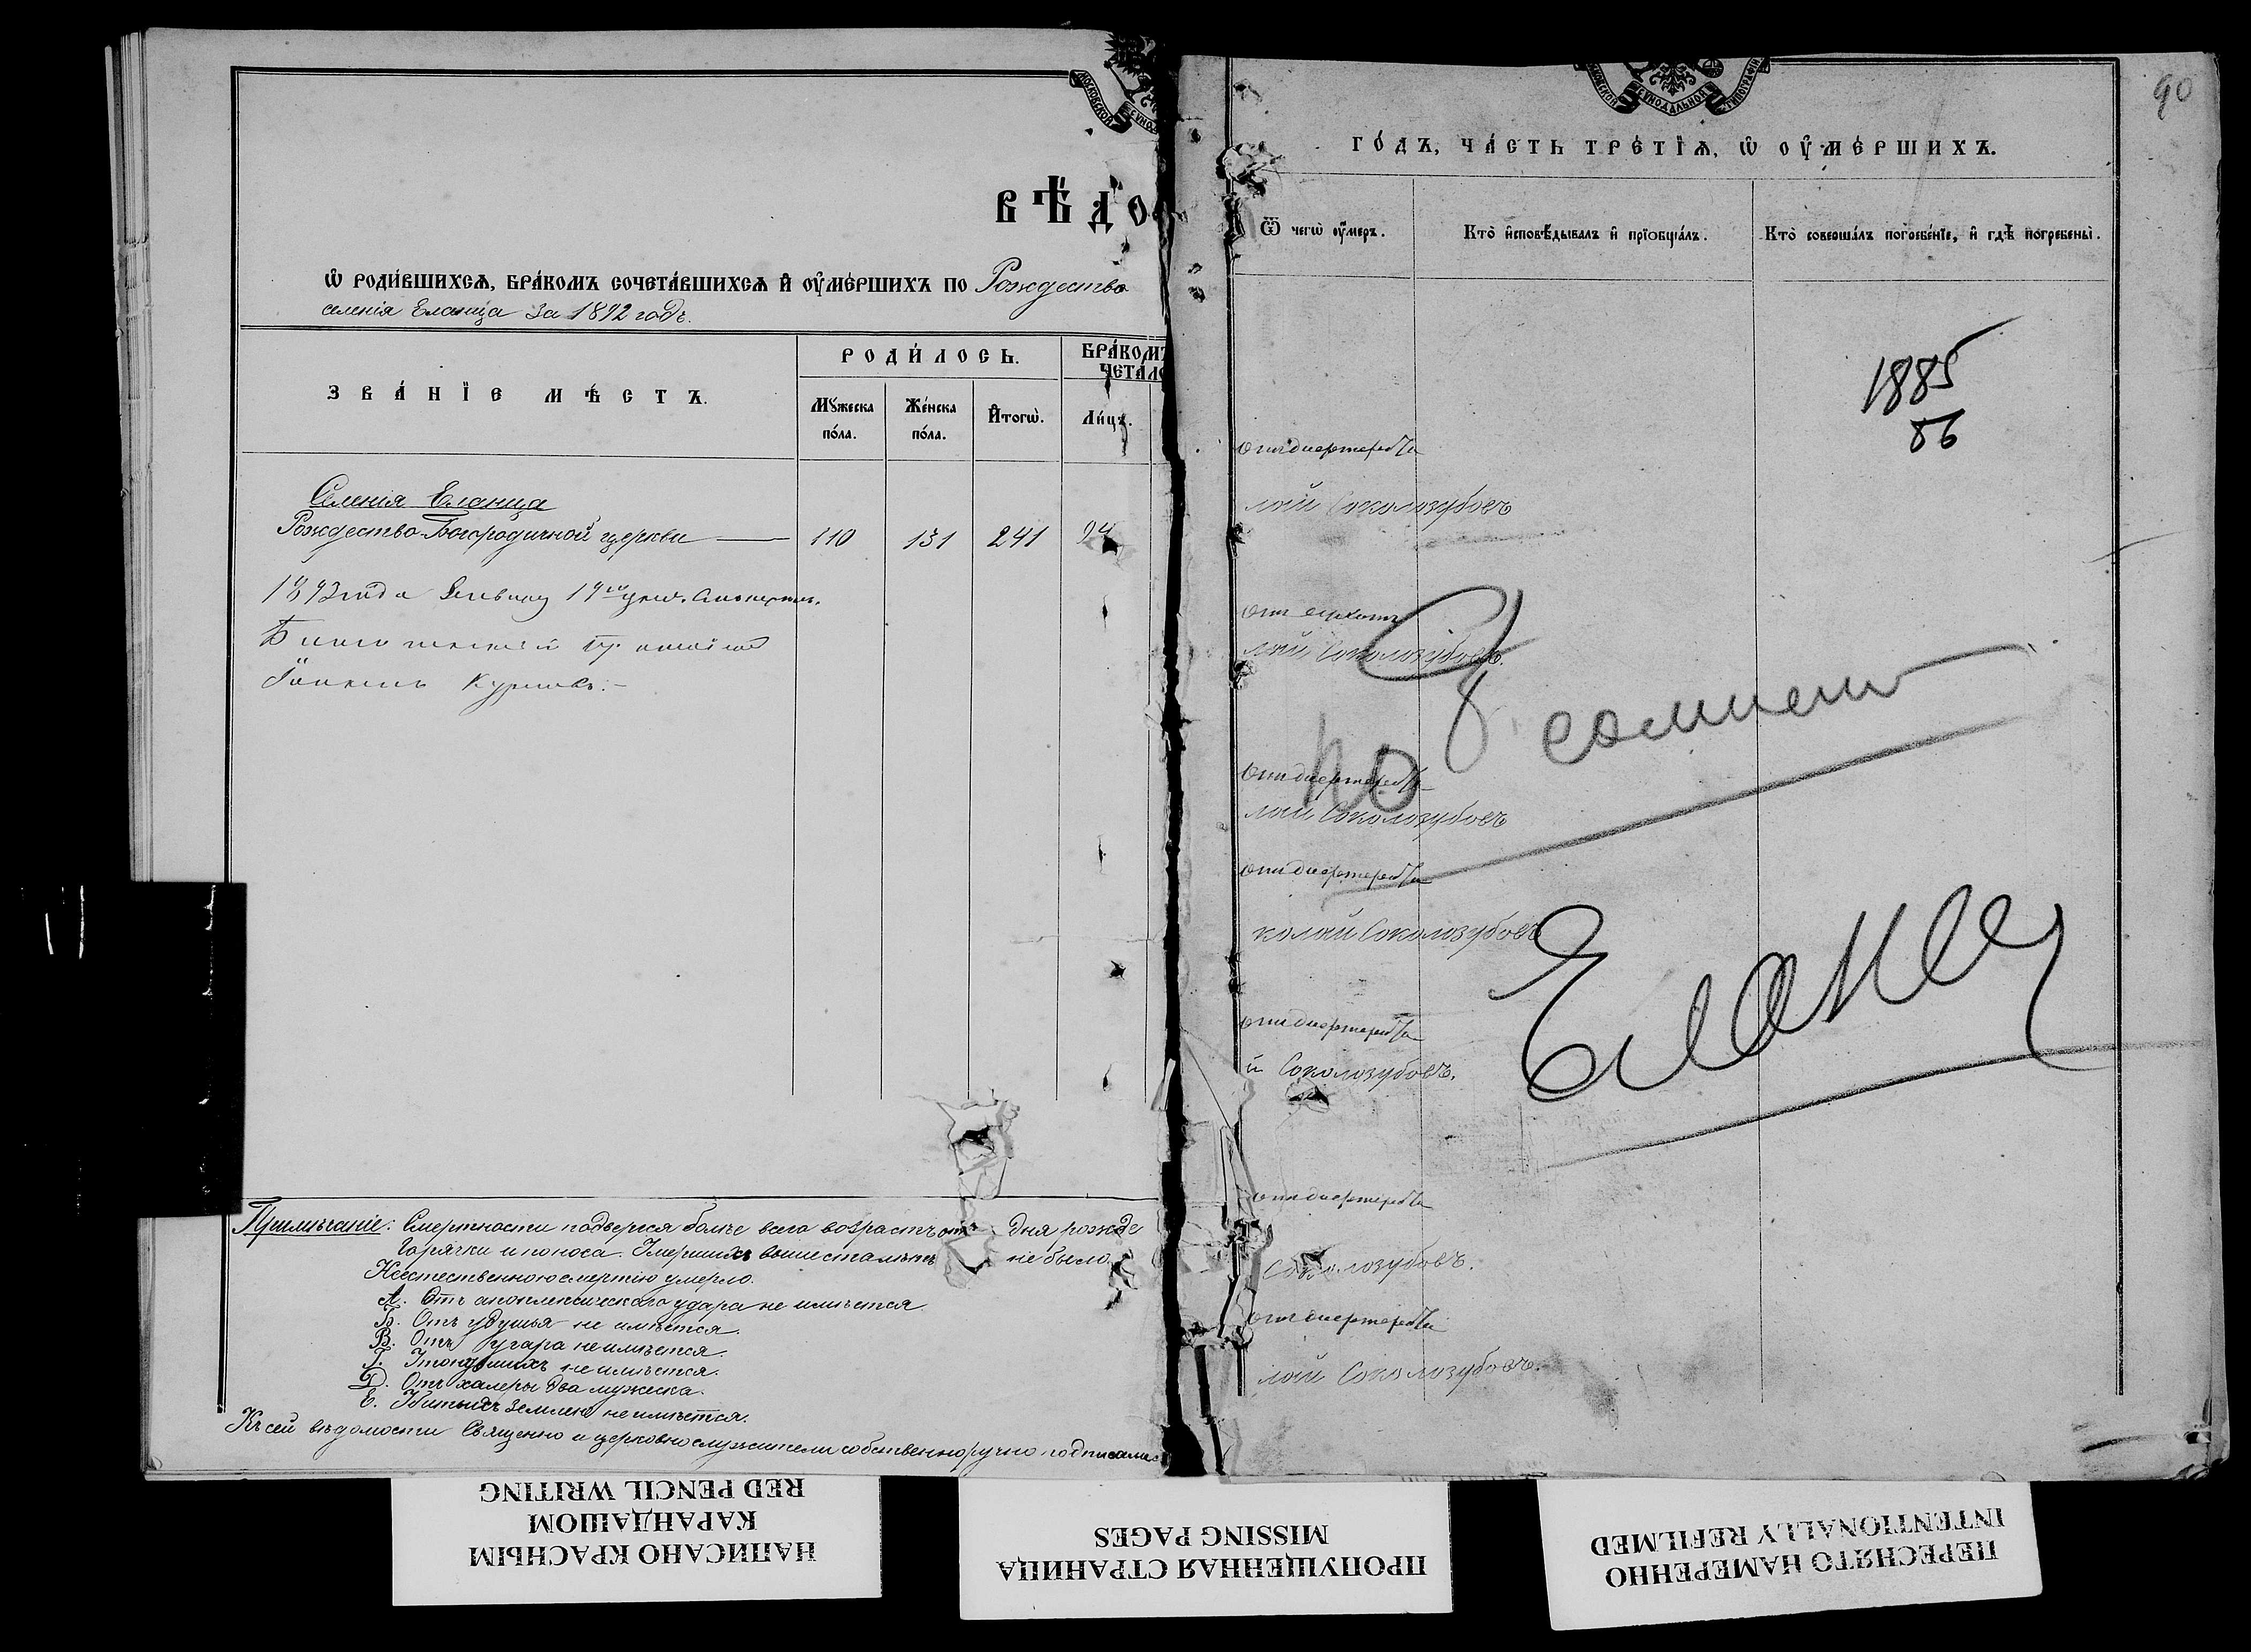 ВѢДО
Ѡ РОДИ́ВШИХСѦ, БРА́КОМЪ СОЧЕТА́ВШИХСѦ И҆ ОУ҆МЕ́РШИХЪ ПО Рождество
селенія Еланца за 1892 годъ.
ЗВА́НЇЕ МѢ́СТЪ.
РОДИ́ЛОСЬ.
БРА́КОМЪ
ЧЕТАЛО
Мꙋ́жеска по́ла.
Же́нска по́ла.
И҆тогѡ̀.
Ли́цъ.
Селенія Еланца
Рождество-Богородичной церкви — 110 131 241 94
1893 года Января 19
Примѣчаніе: Смертности подвергся болѣе всего возрастъ отъ дня рожде
Горячки и поноса. Умершихъ выше ста лѣтъ не было.
Неестественною смертію умерло.
А. Отъ апоплексическаго удара не имѣется.
Б. Отъ удушья не имѣется.
В. Отъ угара не имѣется.
Г. Утонувшихъ не имѣется.
Д. Отъ халеры два мужеска.
Е. Убитыхъ землею не имѣется.
Къ сей вѣдомости Священно и церковнослужители собственноручно подписались
МОСКОВСКОЙ СѴНОДАЛЬНОЙ ТИПОГРАФІИ
90
ГО́ДЪ, ЧА́СТЬ ТРЕ́ТЇѦ, Ѡ҆ ОУ҆МЕ́РШИХЪ.
Ѿ чегѡ̀ оу҆́меръ.
Кто̀ и҆сповѣ́дывалъ и҆ прїобща́лъ.
Кто̀ соверша́лъ погребе́нїе, и҆ гдѣ̀ погребены̀.
1885
86
отъ диѳтерита
лай Соколозубовъ
отъ
лай Соколозубовъ.
отъ диѳтерита
лай Соколозубовъ
отъ диѳтерита
колай Соколозубовъ
отъ диѳтерита
й Соколозубовъ.
отъ диѳтерита
Соколозубовъ.
отъ диѳтерита
лай Соколозубовъ.
Еланец
НАПИСАНО КРАСНЫМ
КАРАНДАШОМ
RED PENCIL WRITING
ПРОПУЩЕННАЯ СТРАНИЦА
MISSING PAGES
ПЕРЕСНЯТО НАМЕРЕННО
INTENTIONALLY REFILMED